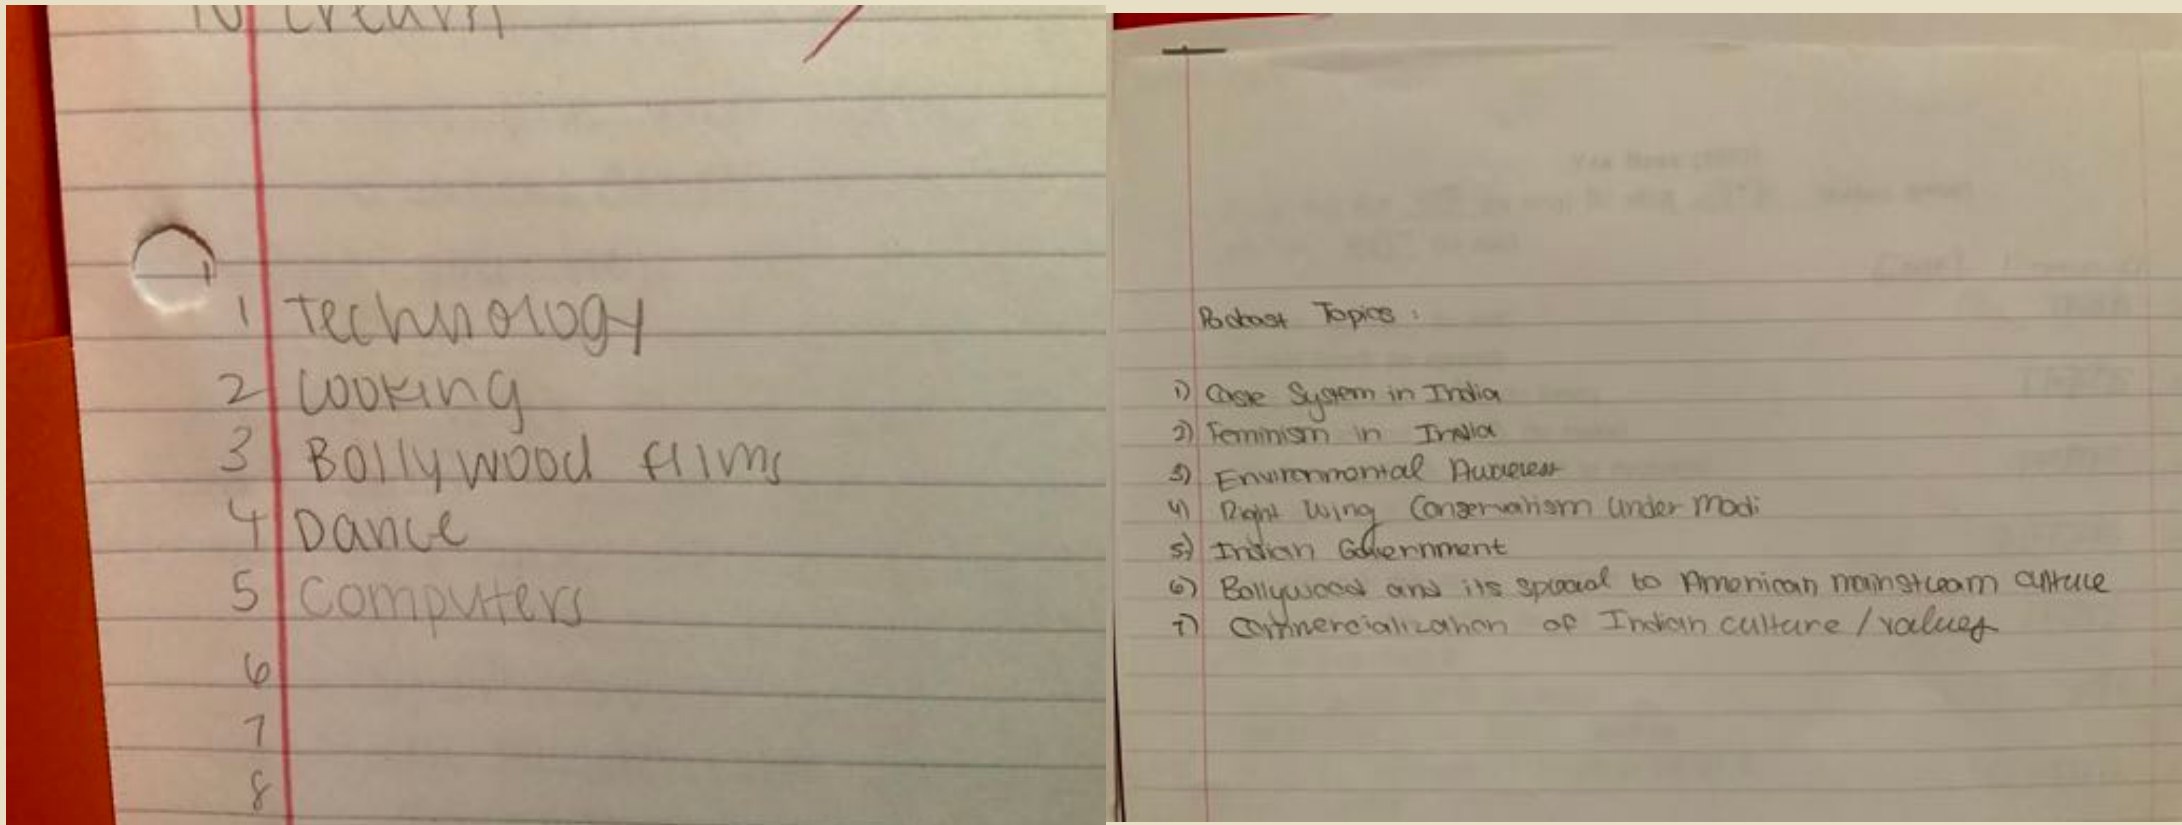 10 cream
1 Technology
2 Cooking
3 Bollywood films
4 Dance
5 Computers
6
7
8
Podcast Topics :
1) Caste System in India
2) Feminism in India
3) Environmental Awareness
4) Right Wing Conservatism Under Modi
5) Indian Government
6) Bollywood and its spread to American mainstream culture
7) Commercialization of Indian culture / values